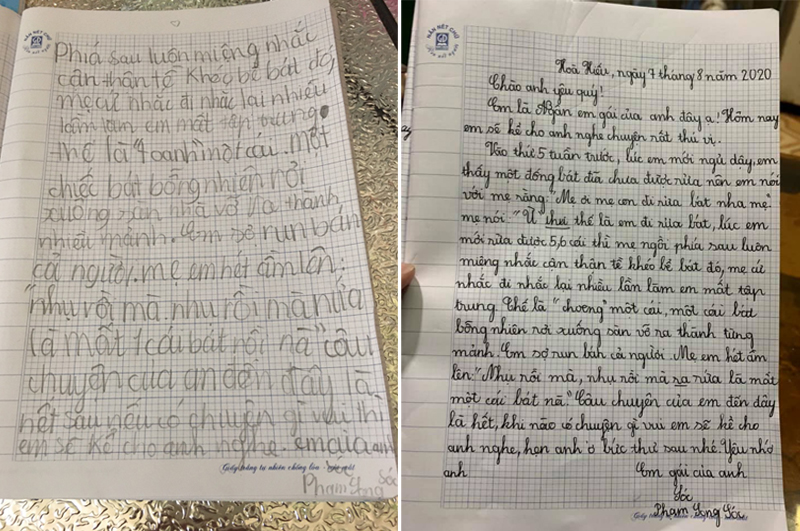 NẮN NÉT CHỮ
Phiá sau luôn miệng nhắc
cận thân tề khéo bể bát đó,
mẹ cứ nhắc đi nhắc lại nhiều
lầm làm em mất tập trung
thế là "toanh" một cái. một
chiếc bát bỗng nhiên rơi
xuống sàn nhà vỡ ra thành
nhiều mảnh. Em sợ run bắn
cả người. mẹ em hét ầm lên:
"nhụ rồi mà, nhụ rồi mà nứa
là mất 1 cái bát rồi nà" câu
chuyện của an đến đây là
hết sau nếu có chuyện gì vui thì
em sẽ kể cho anh nghe. em của anh
Giấy trắng tự nhiên chống lóa
Sóc
Phạm
NẮN NÉT CHỮ
Hoà Hiếu, ngày 7 tháng 8 năm 2020
Chào anh yêu quý!
Em là em gái của anh đây ạ! Hôm nay
em sẽ kể cho anh nghe chuyện rất thú vị.
Vào thứ 5 tuần trước, lúc em mới ngủ dậy, em
thấy một đống bát đĩa chưa được rửa nên em nói
với mẹ rằng: Mẹ ơi mẹ con đi rửa bát nha mẹ.
mẹ nói: "Ừ" thuí thế là em đi rửa bát, lúc em
mới rửa được 5,6 cái thì mẹ ngồi phía sau luôn
miệng nhắc cận thân tề khéo bể bát đó, mẹ cứ
nhắc đi nhắc lại nhiều lần làm em mất tập
trung. Thế là "choeng" một cái, một cái bát
bỗng nhiên rơi xuống sàn vỡ ra thành từng
mảnh. Em sợ run bắn cả người. Mẹ em hét ầm
lên: "Nhụ rồi mà, nhụ rồi mà ra rứa là mất
một cái bát nã". Câu chuyện của em đến đây
là hết, khi nào có chuyện gì vui em sẽ kể cho
anh nghe, hẹn anh ở bức thư sau nhé. Yêu nhớ
anh
Em gái của anh
Sóc
Phạm Sóc